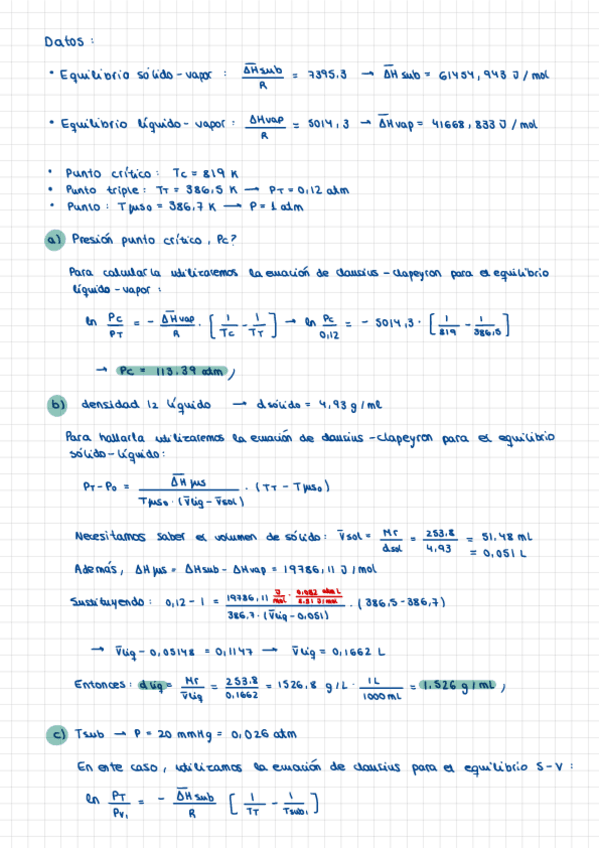 Datos :
• Equilibrio sólido-vapor : ΔHsub/R = 7395,3 → ΔHsub = 61454,943 J/mol
• Equilibrio líquido-vapor : ΔHvap/R = 5014,3 → ΔHvap = 41668,833 J/mol
• Punto crítico : Tc = 819 K
• Punto triple : TT = 386,5 K → PT = 0,12 atm
• Punto : Tfus0 = 386,7 K → P = 1 atm
a) Presión punto crítico, Pc?
Para calcularla utilizaremos la ecuación de clausius-clapeyron para el equilibrio
líquido-vapor :
ln Pc/PT = - ΔHvap/R · [1/Tc - 1/TT] → ln Pc/0,12 = - 5014,3 · [1/819 - 1/386,5]
→ Pc = 113.39 atm,
b) densidad I2 líquido → dsólido = 4,93 g/ml
Para hallarla utilizaremos la ecuación de clausius-clapeyron para el equilibrio
sólido-líquido :
PT - P0 = ΔHfus / Tfus0 · (Vliq - Vsol) · (TT - Tfus0)
Necesitamos saber el volumen de sólido : Vsol = Mr/dsol = 253.8/4,93 = 51.48 mL
= 0,051 L
Además, ΔHfus = ΔHsub - ΔHvap = 19786,11 J/mol
Sustituyendo : 0,12 - 1 = 19786,11 J/mol · 0,082 atm L/8.31 J/mol / 386,7 · (Vliq - 0,051) · (386,5 - 386,7)
→ Vliq - 0,05148 = 0,1147 → Vliq = 0,1662 L
Entonces : dliq = Mr/Vliq = 253.8/0,1662 = 1526,8 g/L · 1L/1000 mL = 1,526 g/mL,
c) Tsub → P = 20 mmHg = 0,026 atm
En este caso, utilizamos la ecuación de clausius para el equilibrio S-V :
ln PT/Pv1 = - ΔHsub/R [1/TT - 1/Tsub1]